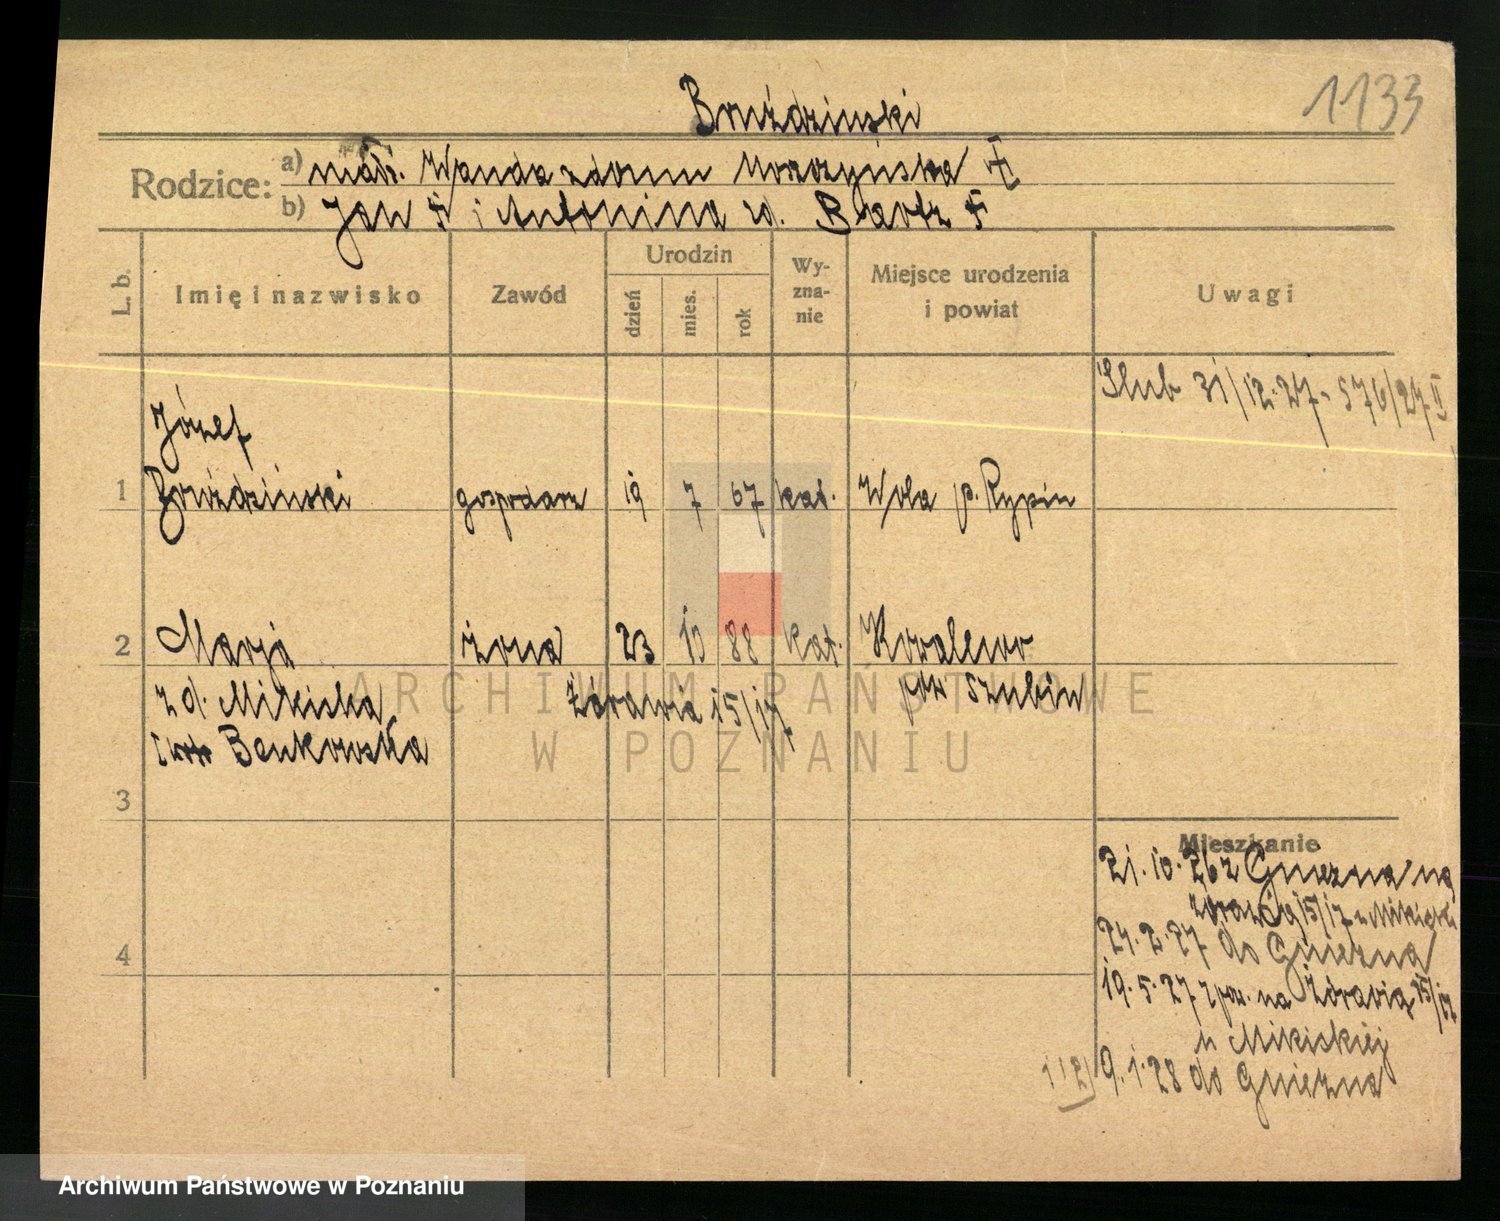 1133
Bruździnski
Rodzice:
a) małż. Wanda z domu
b) Jan † i Antonina zd. Bartz †
L. b.
Imię i nazwisko
Zawód
Urodzin
dzień
mies.
rok
Wy-
zna-
nie
Miejsce urodzenia
i powiat
Uwagi
Slub 31/12.27 - 576/27 II
Józef
1 Bruździnski gospodarz 19 7 67 kat. Wola p. Rypin
2 Marja żona 23 10 88 kat. Kowalewo
zd. Mikicka Żórawia 15/17 pow Szubin
Benkowska
3
Mieszkanie
21. 10. 26 z Gniezna na
Żórawią 15/17 u Mikickiej
4
24. 2. 27 do Gniezna
19. 5. 27 z pow. na Żórawią 15/17
u Mikickiej
9. 1. 28 do Gniezna
ARCHIWUM PAŃSTWOWE
W POZNANIU
Archiwum Państwowe w Poznaniu